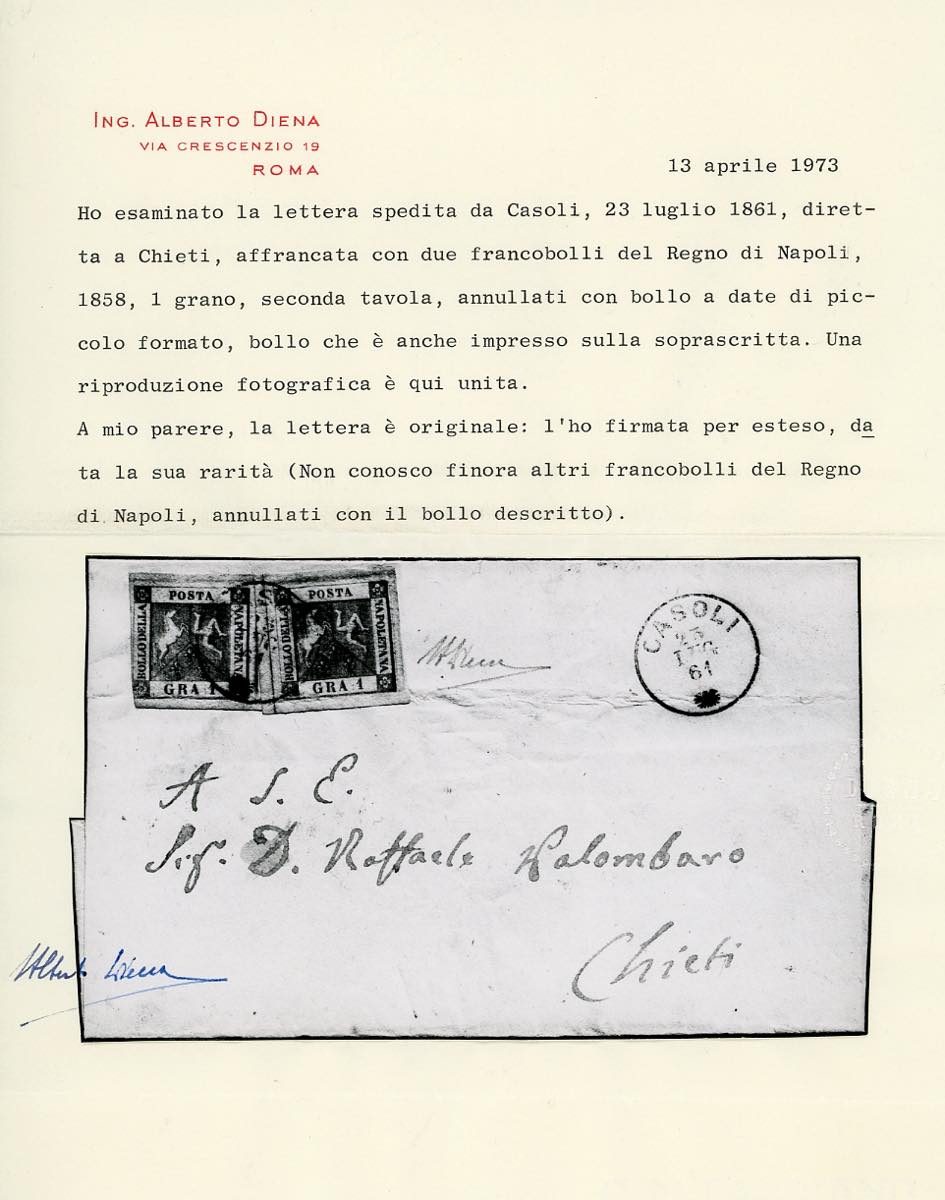 ING. ALBERTO DIENA
VIA CRESCENZIO 19
ROMA
13 aprile 1973
Ho esaminato la lettera spedita da Casoli, 23 luglio 1861, diret-
ta a Chieti, affrancata con due francobolli del Regno di Napoli,
1858, 1 grano, seconda tavola, annullati con bollo a date di pic-
colo formato, bollo che è anche impresso sulla soprascritta. Una
riproduzione fotografica è qui unita.
A mio parere, la lettera è originale: l'ho firmata per esteso, da
ta la sua rarità (Non conosco finora altri francobolli del Regno
di Napoli, annullati con il bollo descritto).
POSTA
BOLLO DELLA
NAPOLETANA
GRA 1
POSTA
BOLLO DELLA
NAPOLETANA
GRA 1
ADiena
CASOLI
23
LUG
61
A S. E.
Sig. D. Raffaele Palombaro
Chieti
Alberto Diena